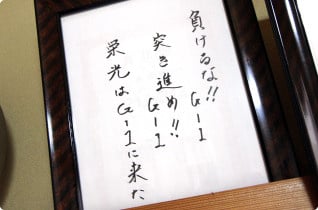 負けるな!! G-1
突き進め!! G-1
栄光はG-1に来た